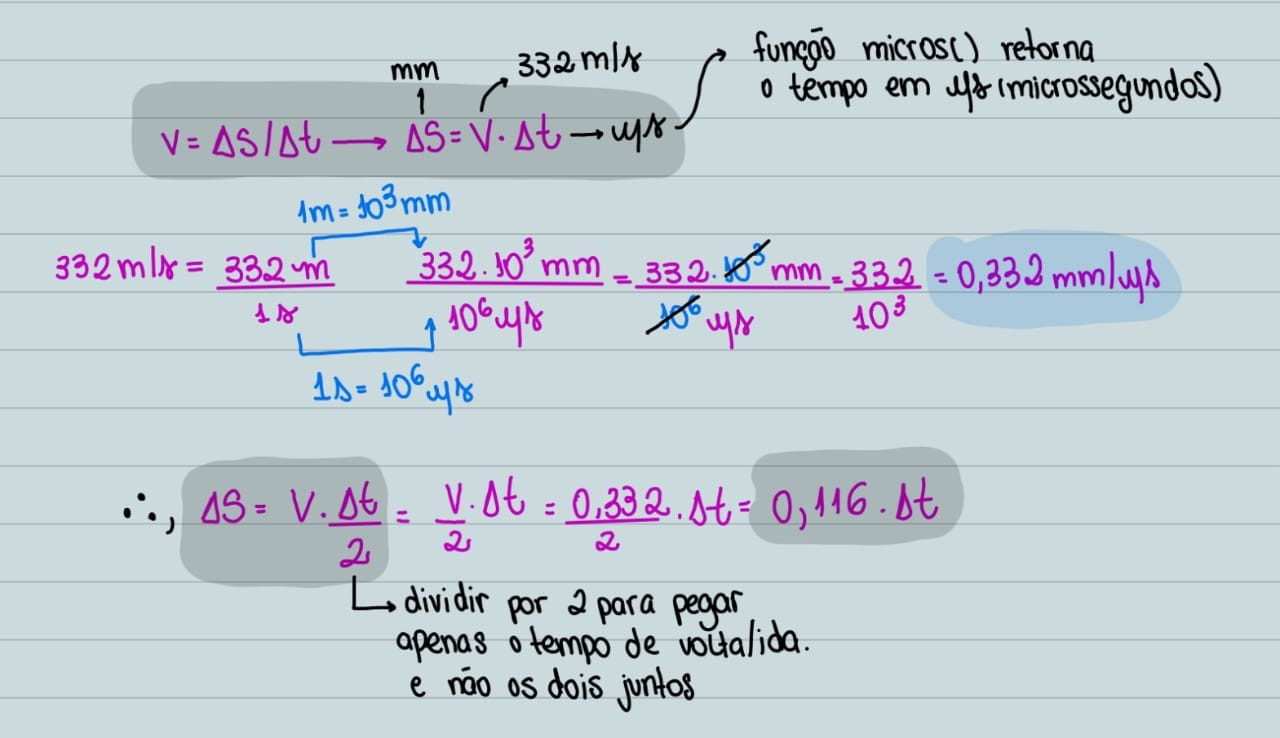 função micros() retorna
o tempo em μs (microssegundos)
mm
332 m/s
V = ΔS/Δt → ΔS = V · Δt → μs
1m = 10³ mm
332 m/s = 332 m / 1s 332 · 10³ mm / 10⁶ μs = 332 · 10³ mm / 10⁶ μs = 332 / 10³ = 0,332 mm/μs
1s = 10⁶ μs
∴, ΔS = V · Δt / 2 = V / 2 · Δt = 0,332 / 2 · Δt = 0,116 · Δt
dividir por 2 para pegar
apenas o tempo de volta/ida.
e não os dois juntos